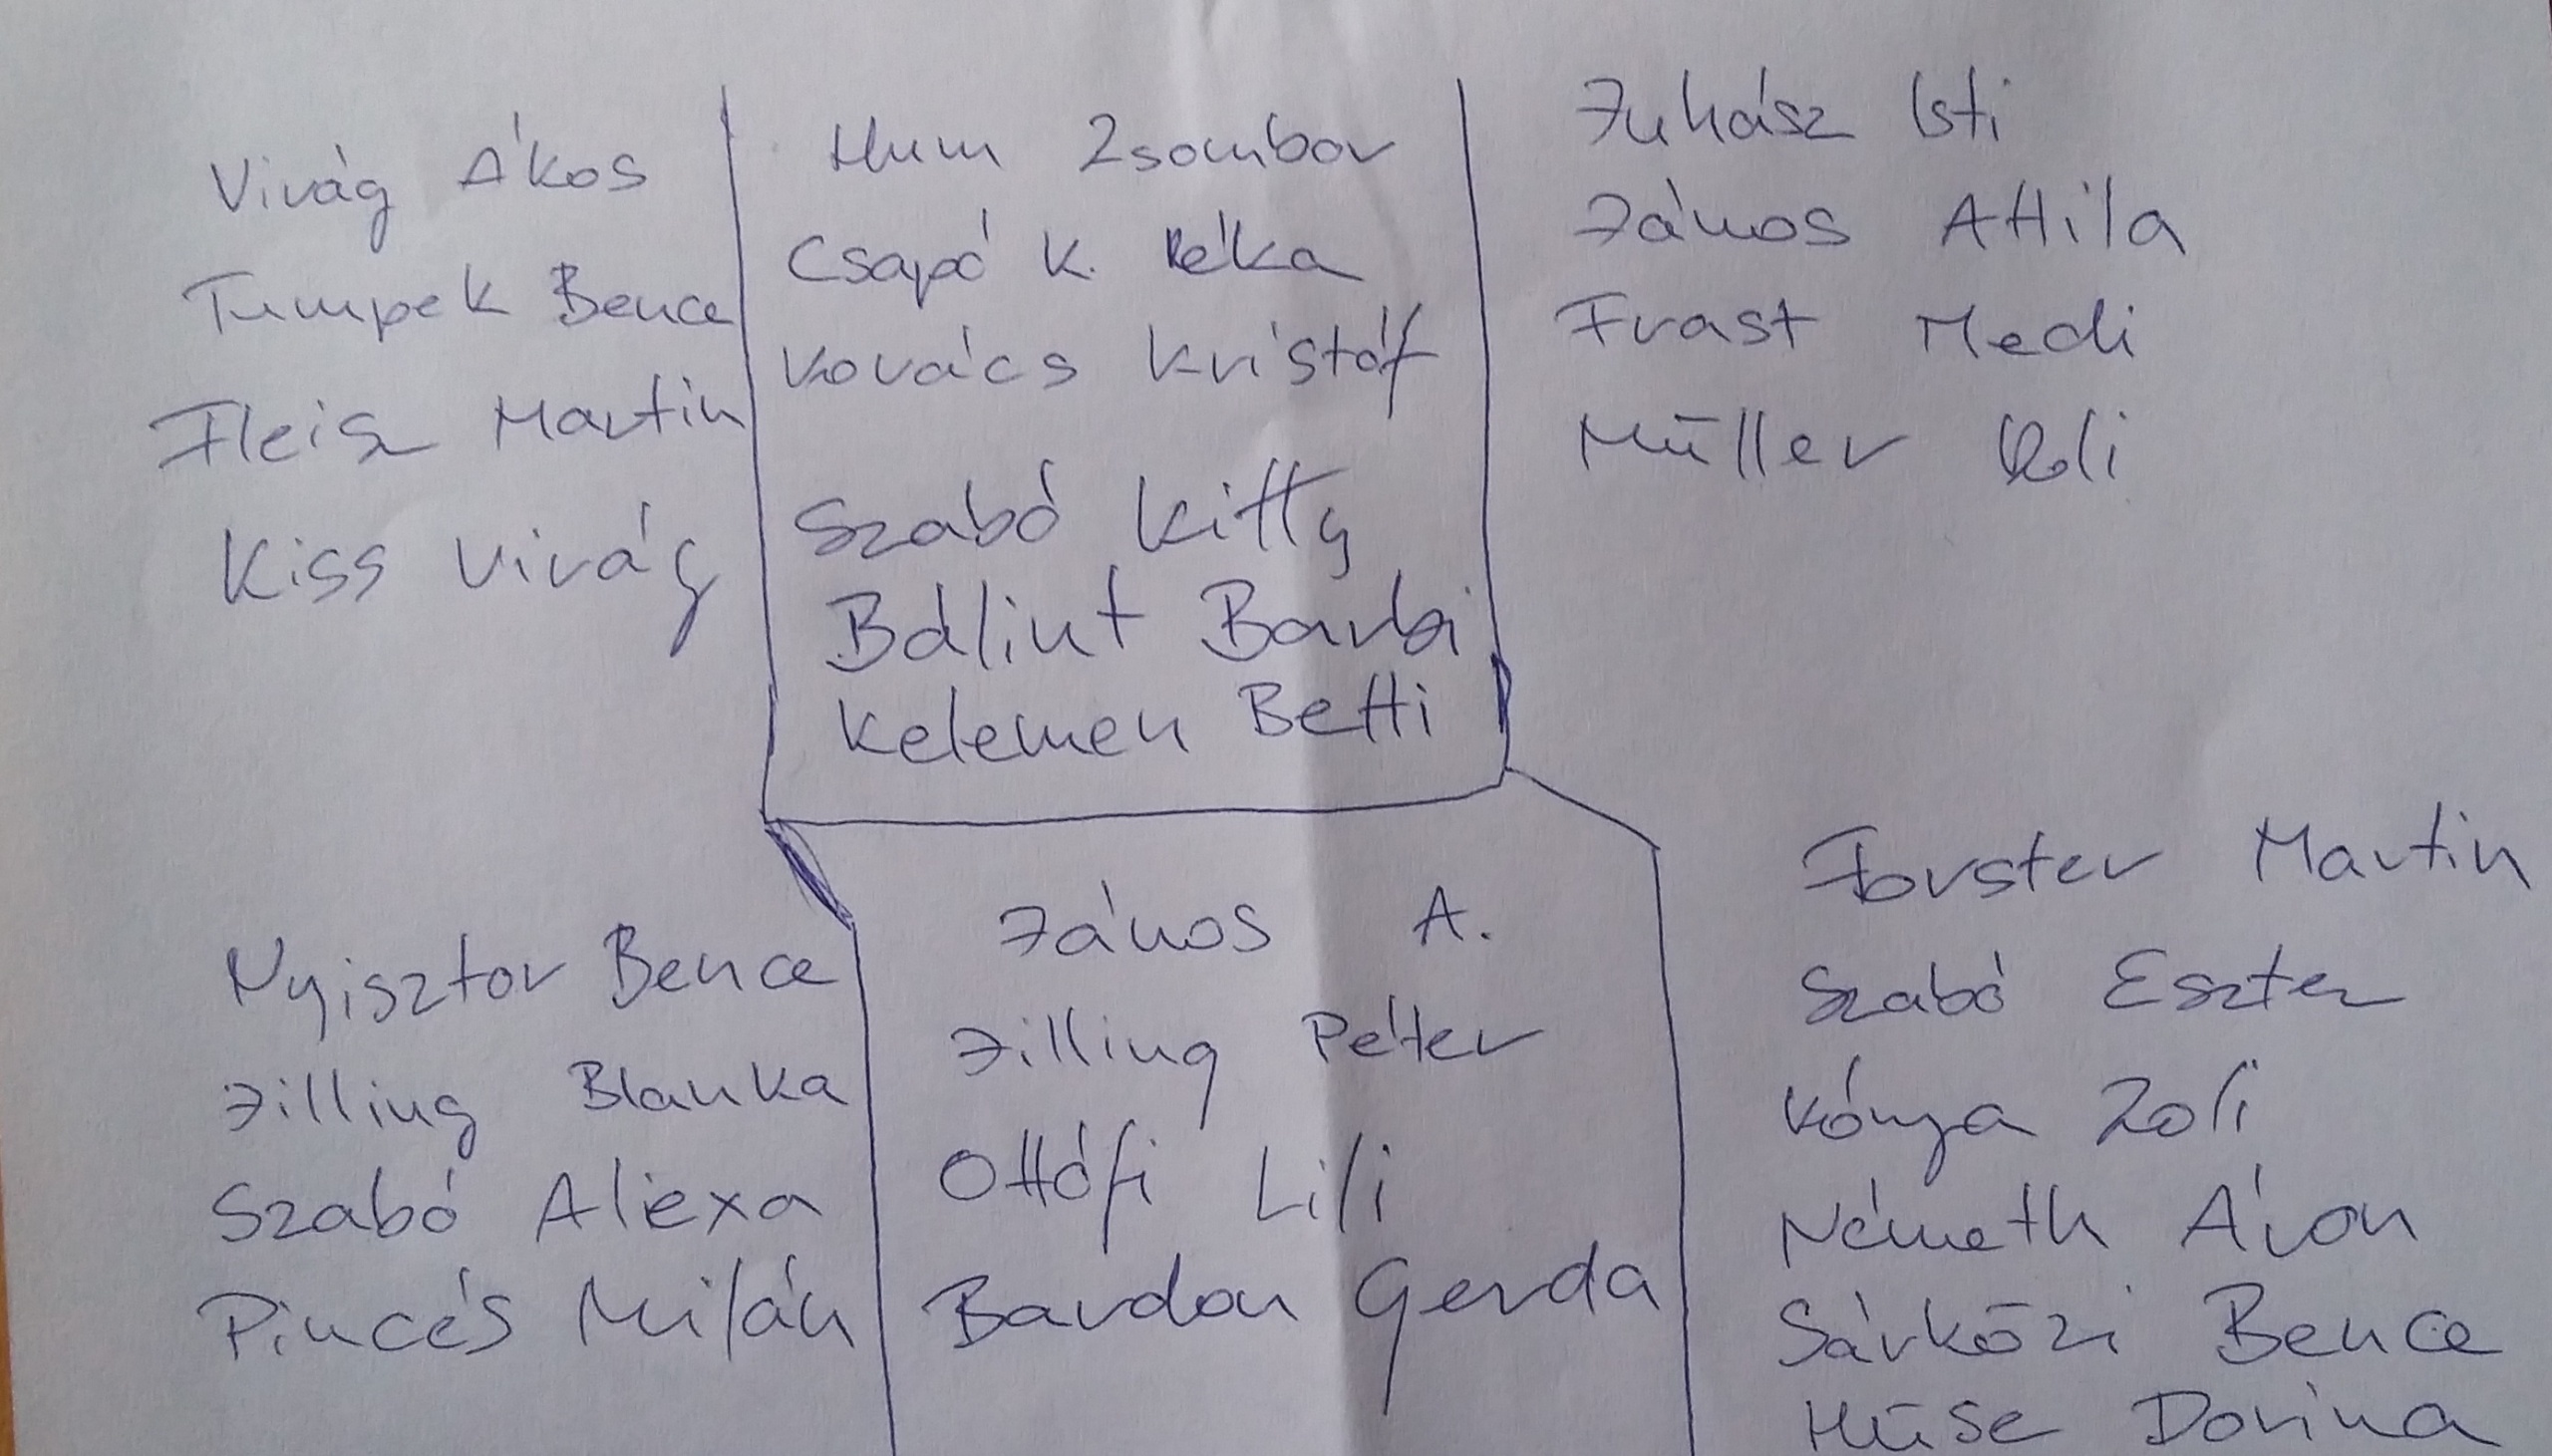 Virág Ákos
Tumpek Bence
Fleisz Martin
Kiss Virág
Hum Zsombor
Csapó K. Réka
Kovács Kristóf
Szabó Kitty
Bálint Barbi
Kelemen Betti
Juhász Isti
János Attila
Frast Medi
Müller Roli
Nyisztor Bence
Jilling Blanka
Szabó Alexa
Pincés Milán
János A.
Jilling Péter
Ottófi Lili
Bardon Gerda
Forster Martin
Szabó Eszter
Kónya Zoli
Németh Áron
Sárközi Bence
Hüse Dorina